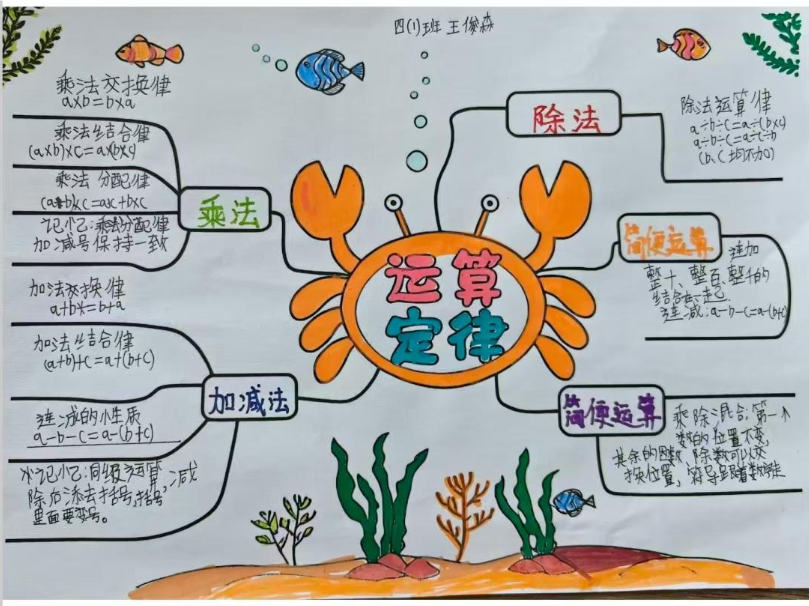 四(1)班 王俊森
运算
定律
乘法
乘法交换律
a×b=b×a
乘法结合律
(a×b)×c=a×(b×c)
乘法分配律
(a+b)×c=a×c+b×c
记忆:乘法分配律
加减号保持一致
加减法
加法交换律
a+b=b+a
加法结合律
(a+b)+c=a+(b+c)
连减的性质
a-b-c=a-(b+c)
记忆:同级运算,减
除后添去括号,括号
里面要变号。
除法
除法运算律
a÷b÷c=a÷(b×c)
a÷b÷c=a÷c÷b
(b、c均不为0)
简便运算
连加
整十、整百、整千的
结合在一起
连减:a-b-c=a-(b+c)
简便运算
乘除混合:第一个
数的位置不变,
其余的因数、除数可以交
换位置,符号跟着数走